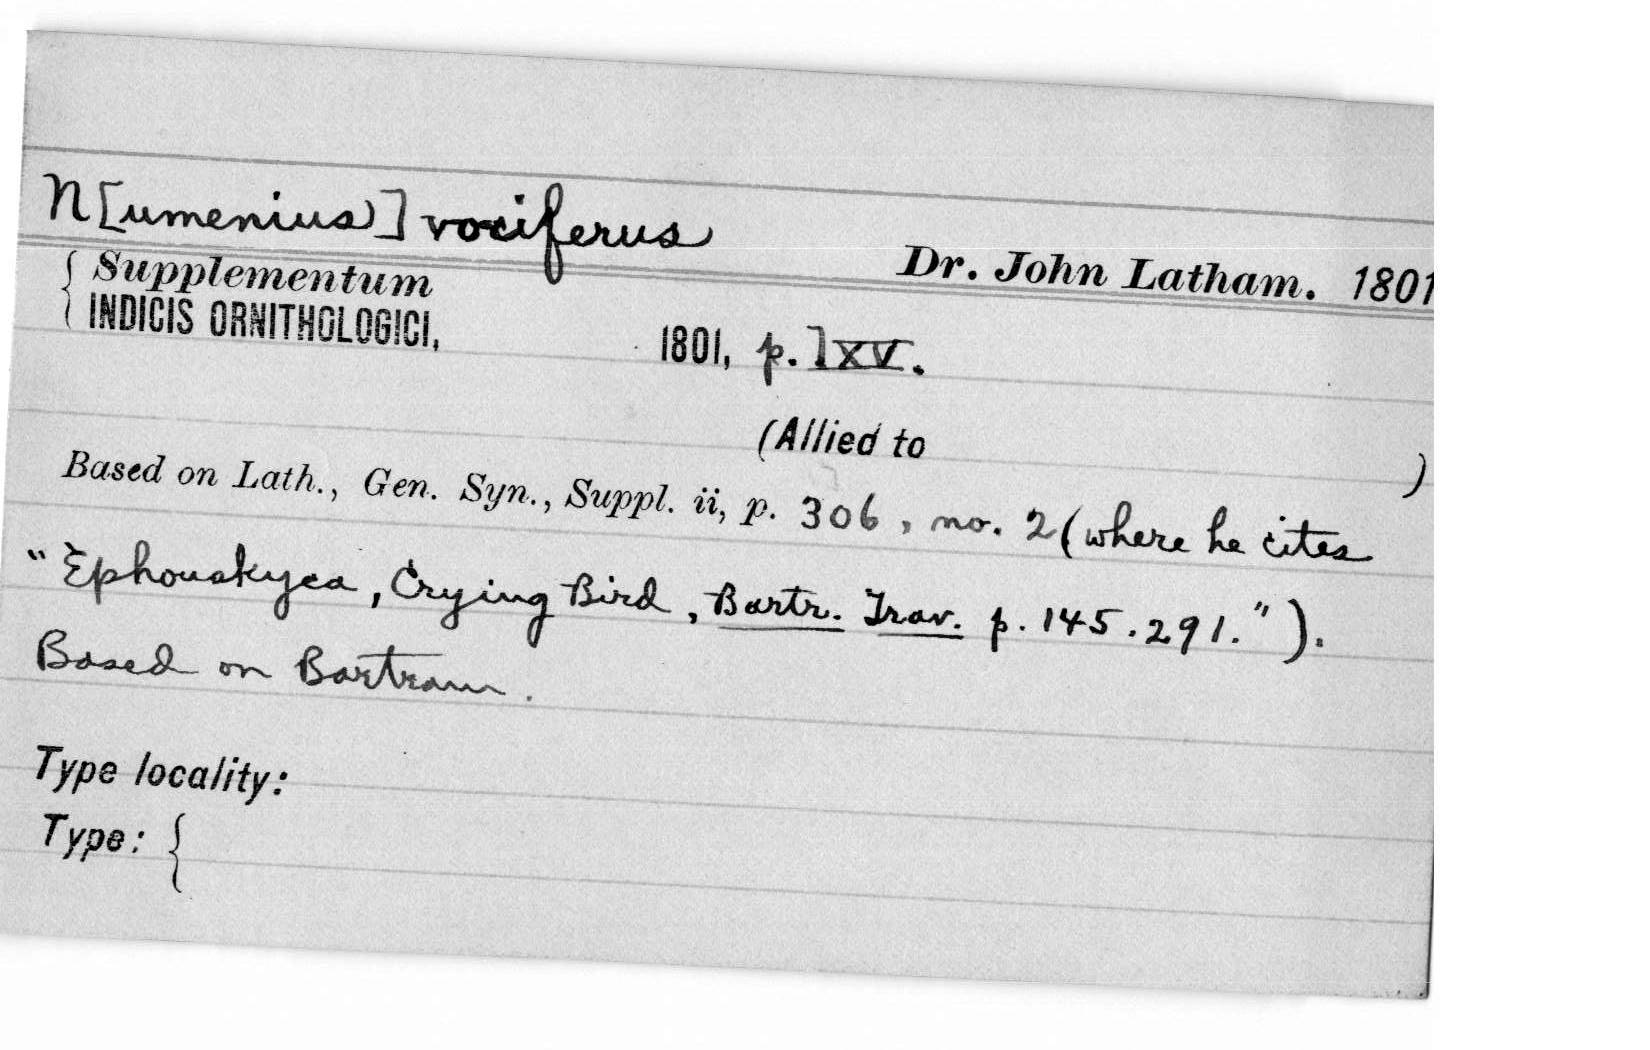 N[umenius] vociferus
Dr. John Latham. 1801
{ Supplementum
INDICIS ORNITHOLOGICI, 1801, p. lxv.
(Allied to )
Based on Lath., Gen. Syn., Suppl. ii, p. 306, no. 2 (where he cites
"Ephouskyca, Crying Bird, Bartr. Trav. p. 145. 291.").
Based on Bartram.
Type locality:
Type: {